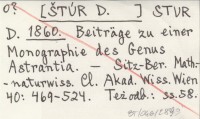 [ŠTÚR D. ] STUR
D. 1860. Beiträge zu einer
Monographie des Genus
Astrantia. — Sitz-Ber. Math-
naturwiss. Cl. Akad. Wiss. Wien
40: 469-524. Též odb.: ss. 58.